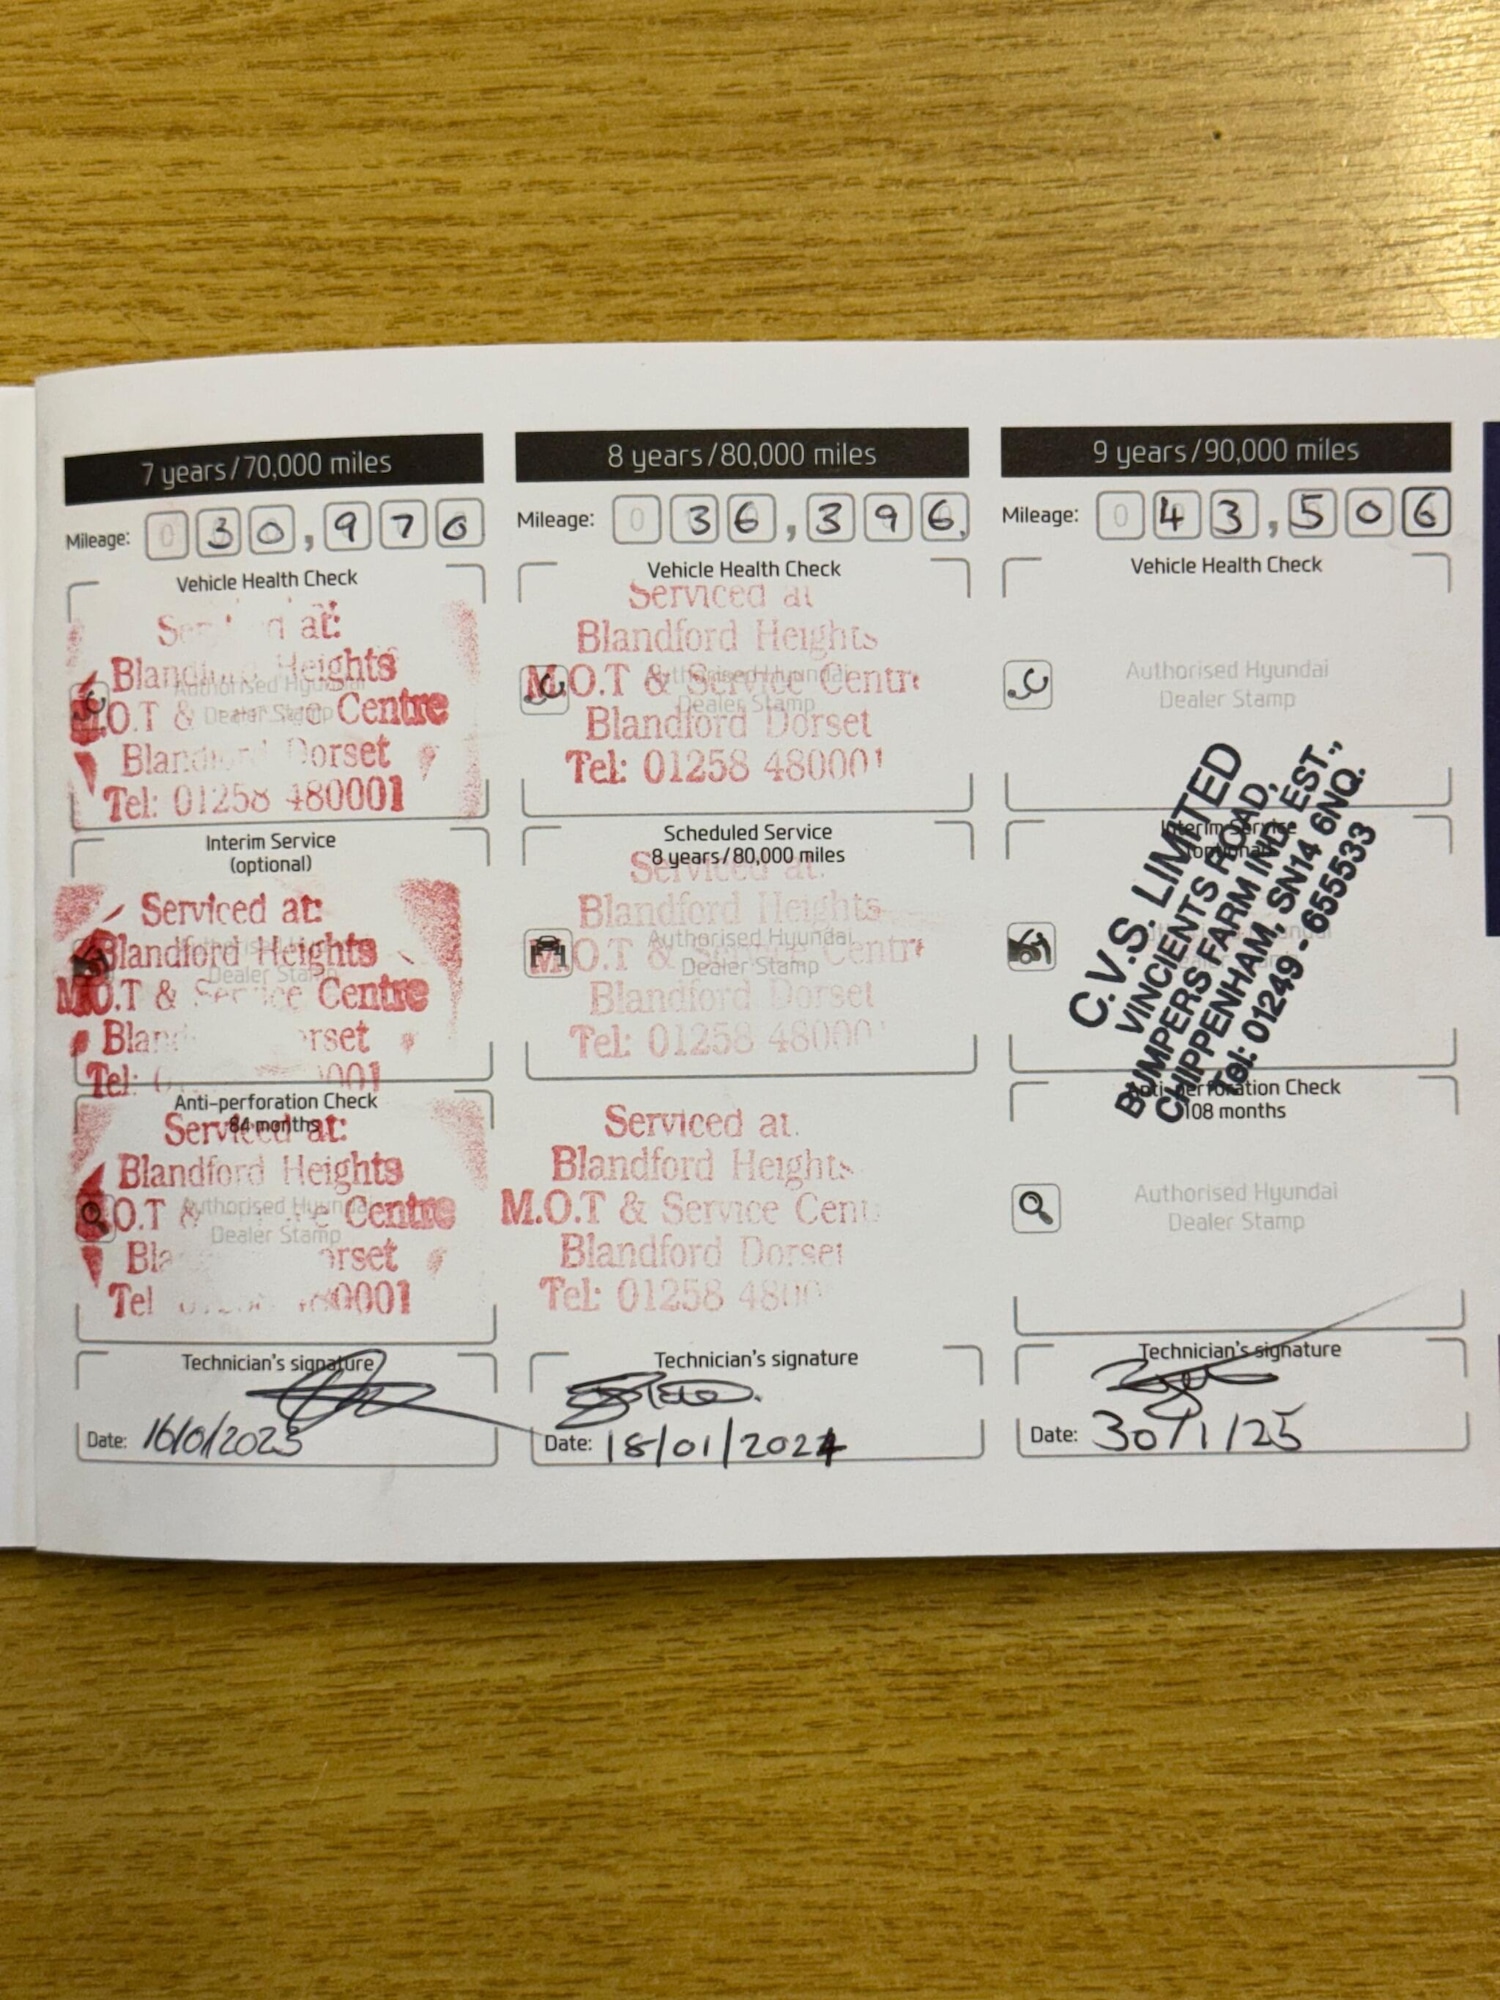 7 years/70,000 miles
Mileage: 0 3 0 , 9 7 0
Vehicle Health Check
at:
Heights
Authorised Hyundai
O.T & Centre
Dealer Stamp
Dorset
Tel: 01258 480001
Interim Service
(optional)
Serviced at:
Blandford Heights
Dealer Stamp
M.O.T & Service Centre
Tel:
Anti-perforation Check
84 months
Serviced at:
Blandford Heights
Authorised Hyundai
O.T & Centre
Dealer Stamp
Tel
Technician's signature
Date: 16/01/2023
8 years/80,000 miles
Mileage: 0 3 6 , 3 9 6
Vehicle Health Check
Serviced at
Blandford Heights
Authorised Hyundai
M.O.T & Service Centre
Dealer Stamp
Blandford Dorset
Tel: 01258 480001
Scheduled Service
8 years/80,000 miles
Serviced at:
Blandford Heights
Authorised Hyundai
M.O.T & Service Centre
Dealer Stamp
Blandford Dorset
Tel: 01258 48000
Serviced at.
Blandford Heights
M.O.T & Service Cent
Blandford Dorset
Tel: 01258 480
Technician's signature
Date: 18/01/2024
9 years/90,000 miles
Mileage: 0 4 3 , 5 0 6
Vehicle Health Check
Authorised Hyundai
Dealer Stamp
Interim Service
(optional)
C.V.S. LIMITED
VINCIENTS ROAD,
BUMPERS FARM IND. EST.,
CHIPPENHAM, SN14 6NQ.
Tel: 01249 - 655533
Anti-perforation Check
108 months
Authorised Hyundai
Dealer Stamp
Technician's signature
Date: 30/1/25